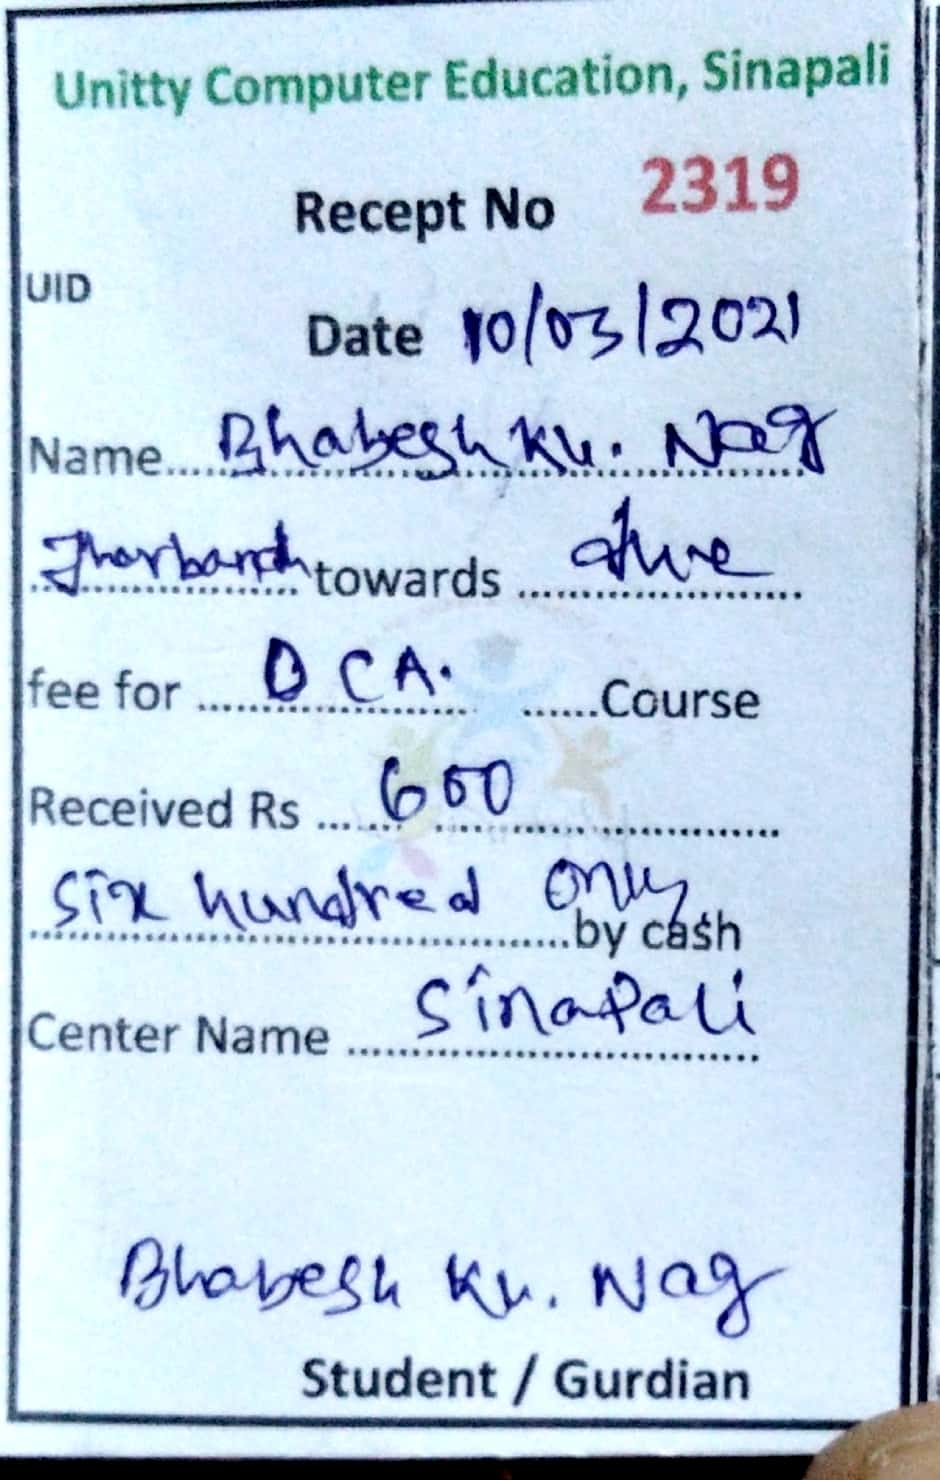 Unitty Computer Education, Sinapali
Recept No 2319
UID
Date 10/03/2021
Name..... Bhabesh Ku. Nag
Jharbandh towards ..... due
fee for ..... DCA. ......Course
Received Rs ..... 600
Six hundred only ...by cash
Center Name ..... Sinapali
Bhabesh Ku. Nag
Student / Gurdian